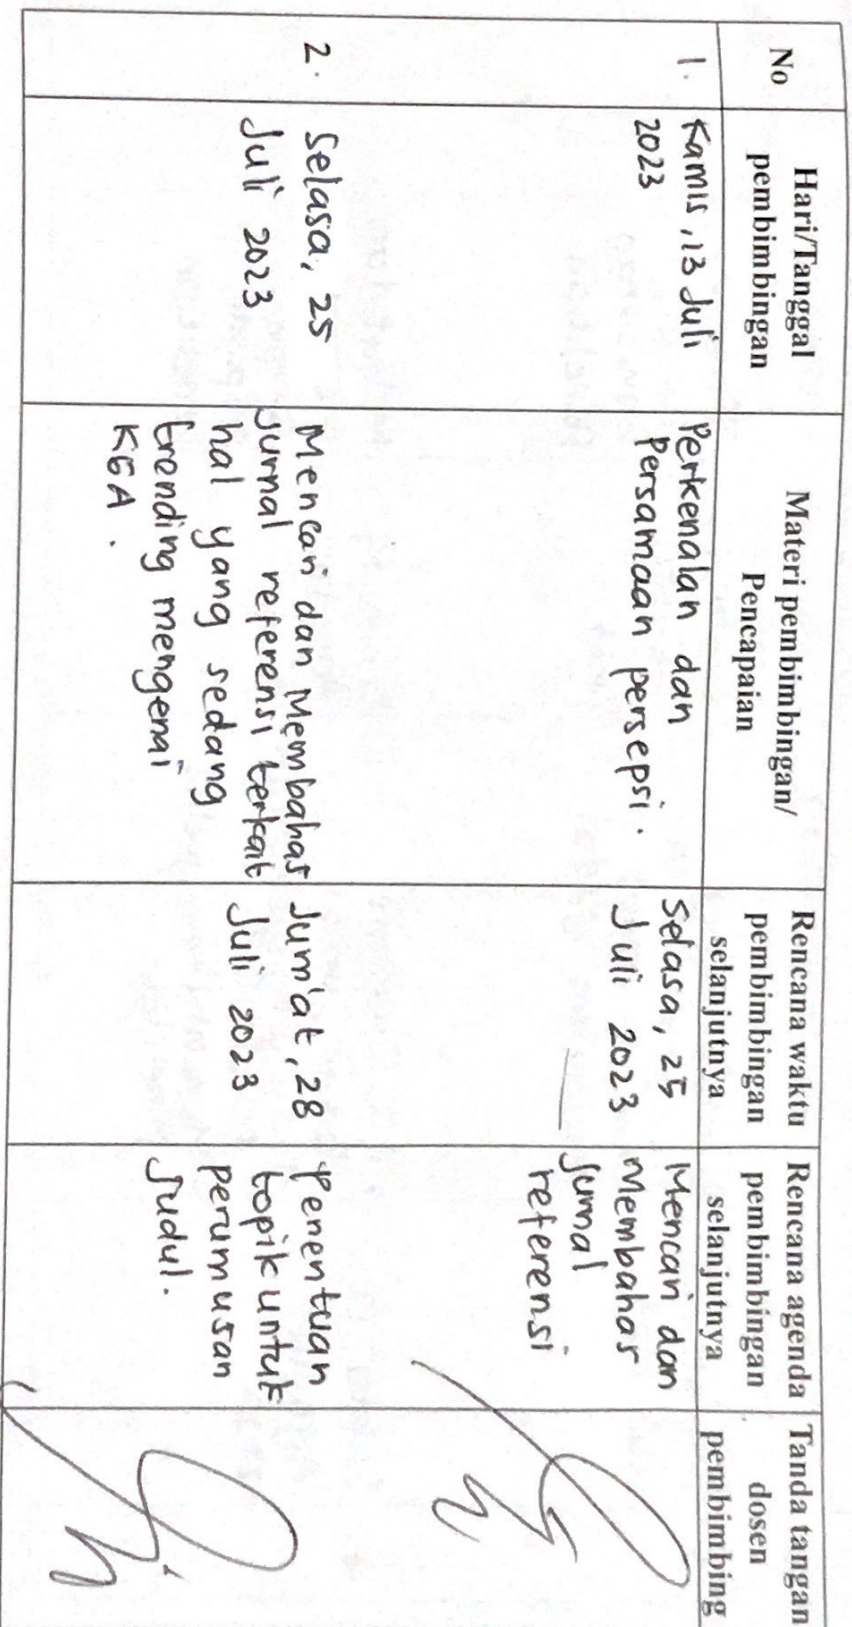 No
Hari/Tanggal
pembimbingan
Materi pembimbingan/
Pencapaian
Rencana waktu
pembimbingan
selanjutnya
Rencana agenda
pembimbingan
selanjutnya
Tanda tangan
dosen
pembimbing
1.
Kamis, 13 Juli
2023
Perkenalan dan
Persamaan persepsi.
Selasa, 25
Juli 2023
Mencari dan
Membahas
Jurnal
referensi
2.
Selasa, 25
Juli 2023
Mencari dan Membahas
Jurnal referensi terkait
hal yang sedang
trending mengenai
KGA.
Jum'at, 28
Juli 2023
Penentuan
topik untuk
perumusan
Judul.